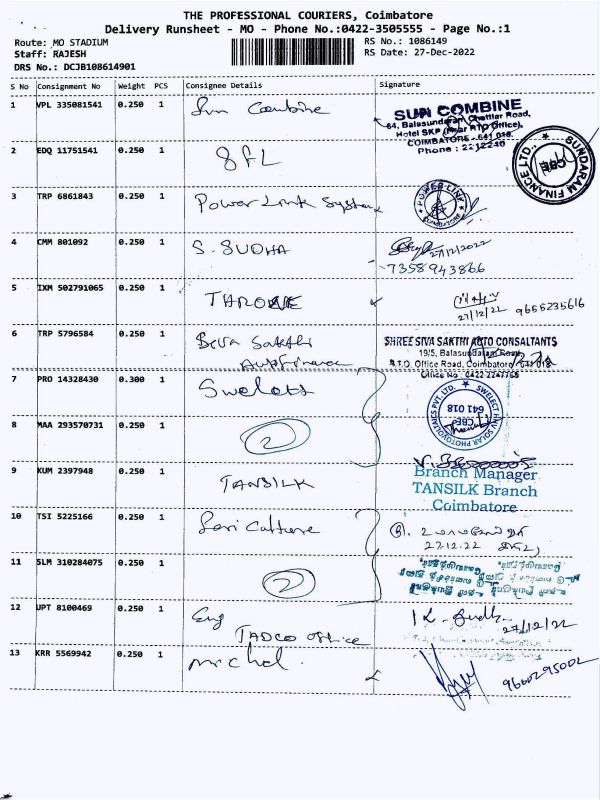 THE PROFESSIONAL COURIERS, Coimbatore
Delivery Runsheet - MO - Phone No.:0422-3505555 - Page No.:1
Route: MO STADIUM
Staff: RAJESH
DRS No.: DCJB108614901
RS No.: 1086149
RS Date: 27-Dec-2022
S No Consignment No Weight PCS Consignee Details Signature
1 VPL 335081541 0.250 1 Sun Combine
SUN COMBINE
64, Balasundaram Chettiar Road,
Hotel SKP (Near RTO Office),
COIMBATORE - 641 018.
Phone : 2212240
2 EDQ 11751541 0.250 1 SFL
SUNDARAM FINANCE LTD., CBE
3 TRP 6861843 0.250 1 Power Link System
POWER LINK COIMBATORE
4 CMM 801092 0.250 1 S. SUDHA
27/12/2022
7358943866
5 IXM 502791065 0.250 1
27/12/22 9655235616
6 TRP 5796584 0.250 1 Siva Sakthi
SHREE SIVA SAKTHI AUTO CONSALTANTS
19/5, Balasundaram Road,
R.T.O. Office Road, Coimbatore - 641 018
Office No : 0422 2247765
7 PRO 14328430 0.300 1 Swelect
SWELECT HHV SOLAR PHOTOVOLTAICS PVT. LTD. CBE 641 018
8 MAA 293570731 0.250 1 2
9 KUM 2397948 0.250 1 TANSILK
Branch Manager
TANSILK Branch
Coimbatore
10 TSI 5225166 0.250 1 Seri Culture
27.12.22
11 SLM 310284075 0.250 1 2
12 UPT 8100469 0.250 1 Eng
TADCO office
27/12/22
13 KRR 5569942 0.250 1 Michel.
9600295002